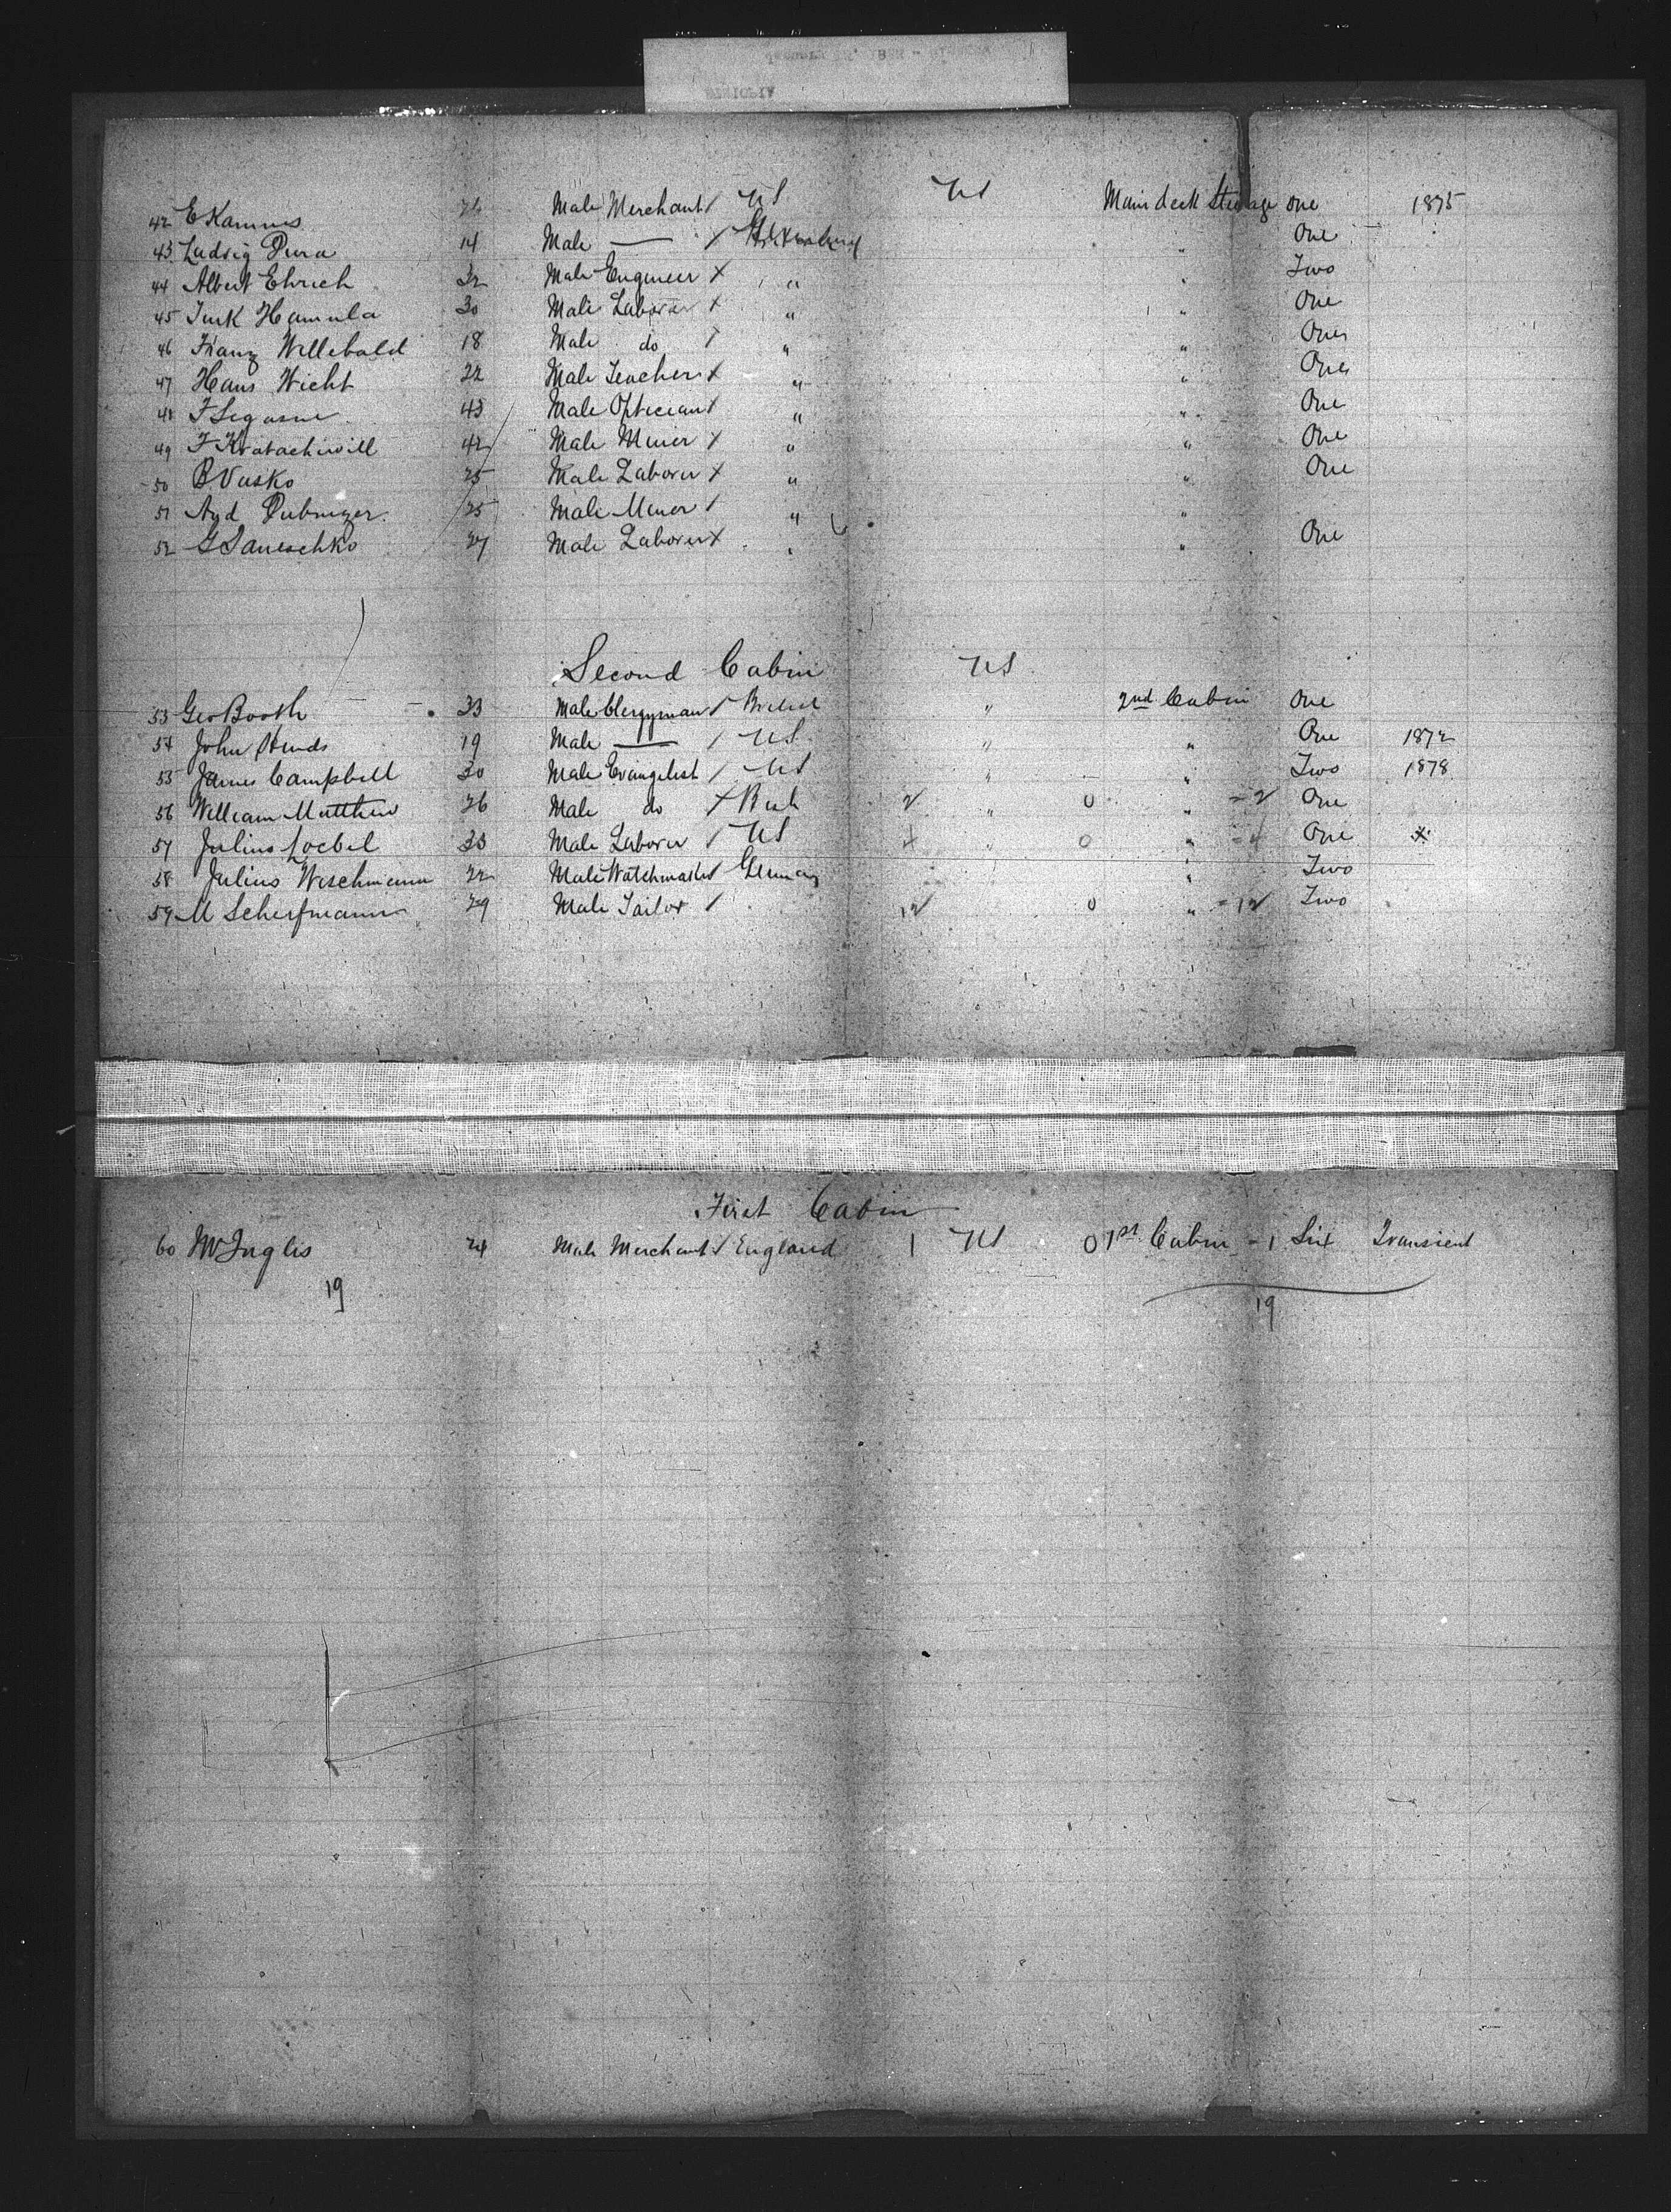 42 E Kammes 26 Male Merchant / US US Main deck Steerage One 1875
43 Ludvig Dura 14 Male — / " One
44 Albert Ehrich 32 Male Engineer X " " Two
45 Hamula 30 Male Laborer X " " One
46 Franz Willebald 18 Male do / " " One
47 Hans Wicht 22 Male Teacher X " " One
48 F 43 Male Optician / " " One
49 F 42 Male Miner X " " One
50 B Vasko 25 Male Laborer X " " One
51 25 Male Miner / " "
52 G Janeschko 27 Male Laborer X " " One
Second Cabin US
53 Geo Booth 33 Male Clergyman / " 2nd Cabin One
54 John Hinds 19 Male — / US " " One 1872
55 James Campbell 30 Male Evangelist / US " " Two 1878
56 William Matthew 26 Male do X 2 " 0 " = 2 One
57 Julius Loebel 33 Male Laborer / US 4 " 0 " = 4 One X
58 Julius Wischmann 22 Male Watchmaker / Germany " Two
59 M Scherfmann 29 Male Tailor / 12 0 " = 12 Two
First Cabin
60 Inglis 24 Male Merchant / England 1 US 0 1st Cabin = 1 Six Transient
19 19